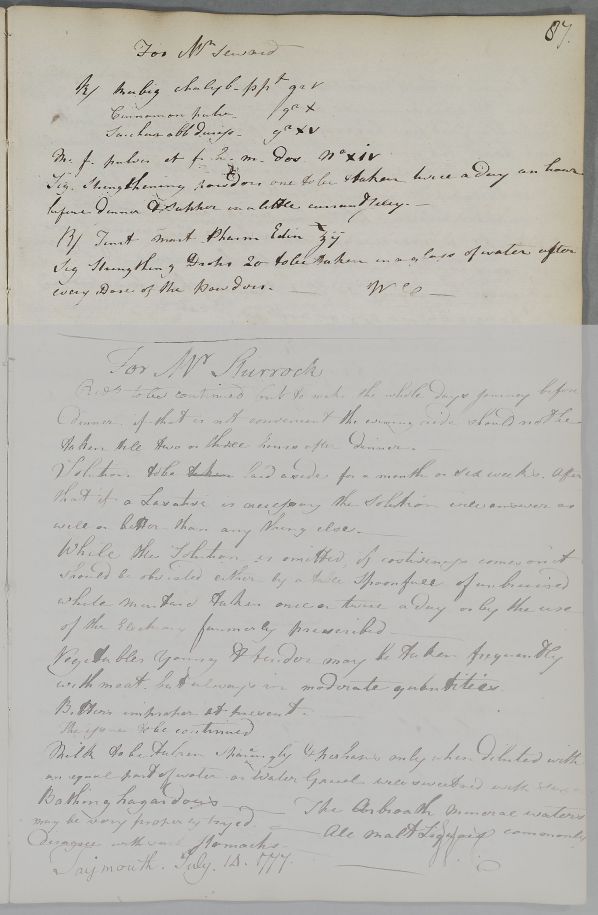 87.
For Mr Seward
R/ Rubig chalyb. ppt gr V
Cinnamon pulv. gr X
Sacchar alb duriss. gr XV
M. f. pulvis et f. h. m. dos. No XIV
Sig. Strengthening Powders one to be taken twice a day an hour
before dinner & Supper in a little currant Jelly. —
R/ Tinct mart Pharm Edin ʒij
Sig Strengthing Drops 20 to be taken in a glass of water after
every Dose of the Powders. — W C —
For Mr Sturrock
Ride to be continued but to make the whole days journey before
Dinner, if that is not convenient the evening ride should not be
taken till two or three hours after dinner. —
Solution to be taken laid aside for a month or six weeks. After
that if a Laxative is necessary the Solution will answer as
well or better than any thing else. —
While the Solution is omitted, if costiveness comes on it
should be obviated either by a table Spoonfull of unbruised
white mustard taken once or twice a day or by the use
of the Electuary formerly prescribed —
Vegetables Young & tender may be taken frequently
with meat but always in moderate quantities
Bitters improper at present. —
The to be continued
Milk to be taken Sparingly & perhaps only when diluted with
an equal part of water or Water Gruel well sweetned with
Bathing hazardous — The Arbroath mineral waters
may be very properly tryed — Ale malt Liquors commonly
Disagree with such Stomachs —
Taymouth. July 14. 1777.